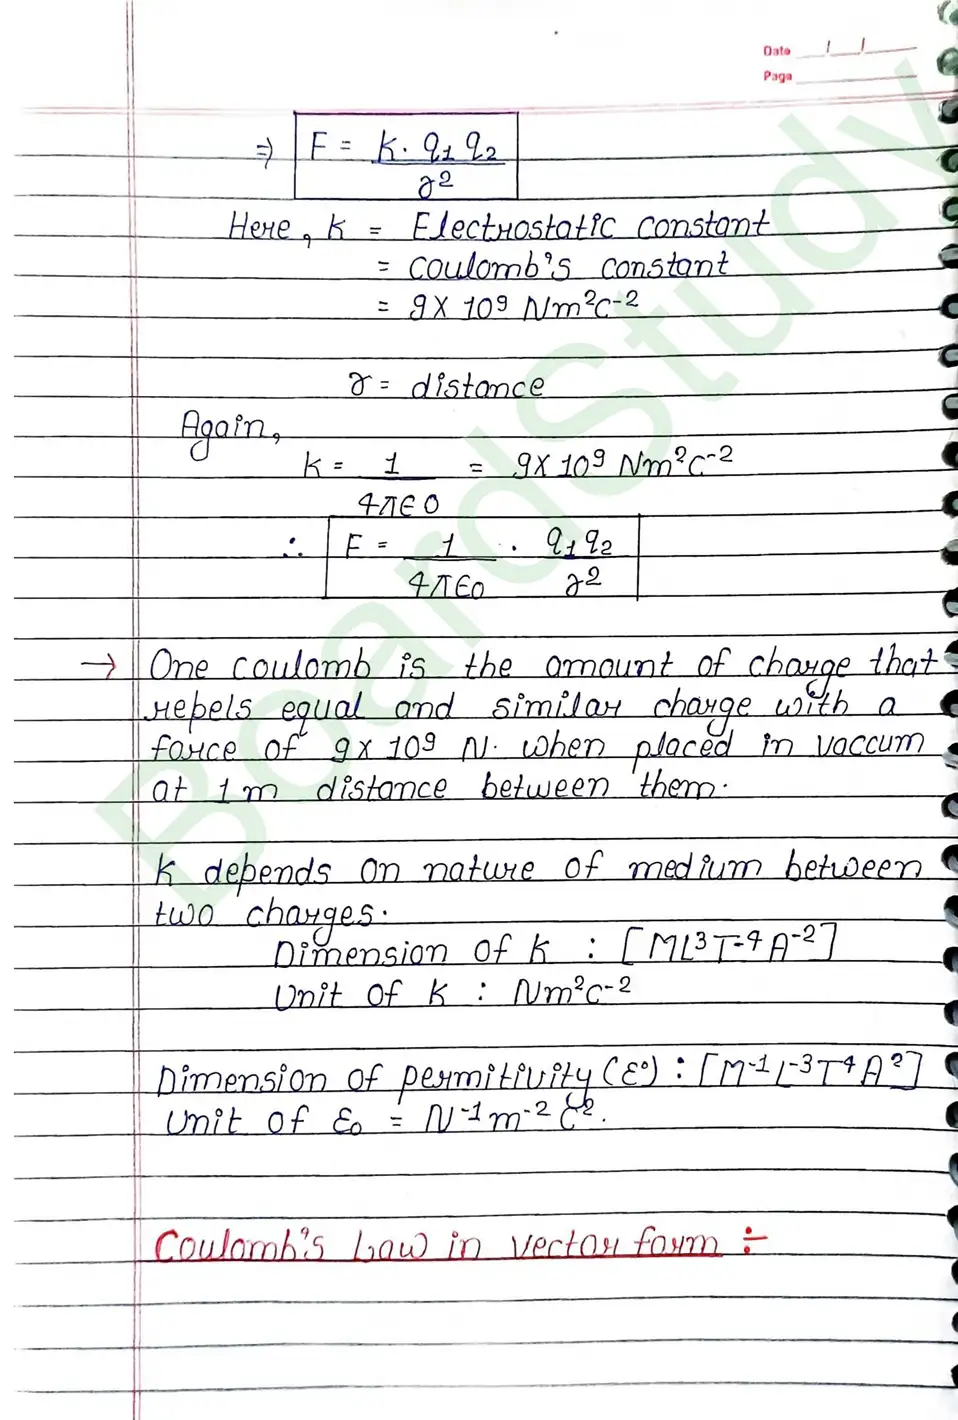 Date __/__/____
Page ____________
⇒ F = K. q1 q2 / r2
Here, K = Electrostatic constant
= coulomb's constant
= 9X 10⁹ Nm²C⁻²
r = distance
Again,
K = 1 / 4πϵ0 = 9X 10⁹ Nm²C⁻²
∴ F = 1 / 4πϵ0 . q1q2 / r2
→ One coulomb is the amount of charge that
repels equal and similar charge with a
force of 9X 10⁹ N. when placed in vaccum
at 1m distance between them.
K depends on nature of medium between
two charges.
Dimension of K : [ML³T⁻⁴A⁻²]
Unit of K : Nm²C⁻²
Dimension of permitivity (ε°) : [M⁻¹L⁻³T⁴A²]
Unit of ε₀ = N⁻¹m⁻²C².
Coulomb's Law in vector form ÷
BoardStudy